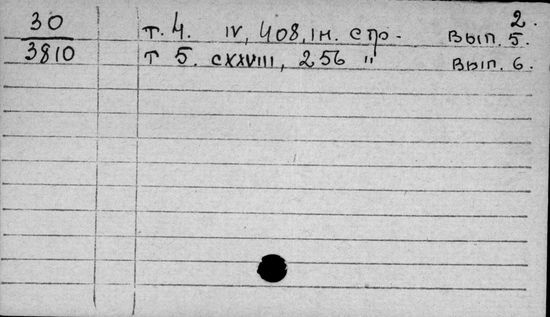 2.
30 т. 4. IV, 408, 1 н. стр. Вып. 5.
3810 т 5. CXXVIII, 256 " Вып. 6.